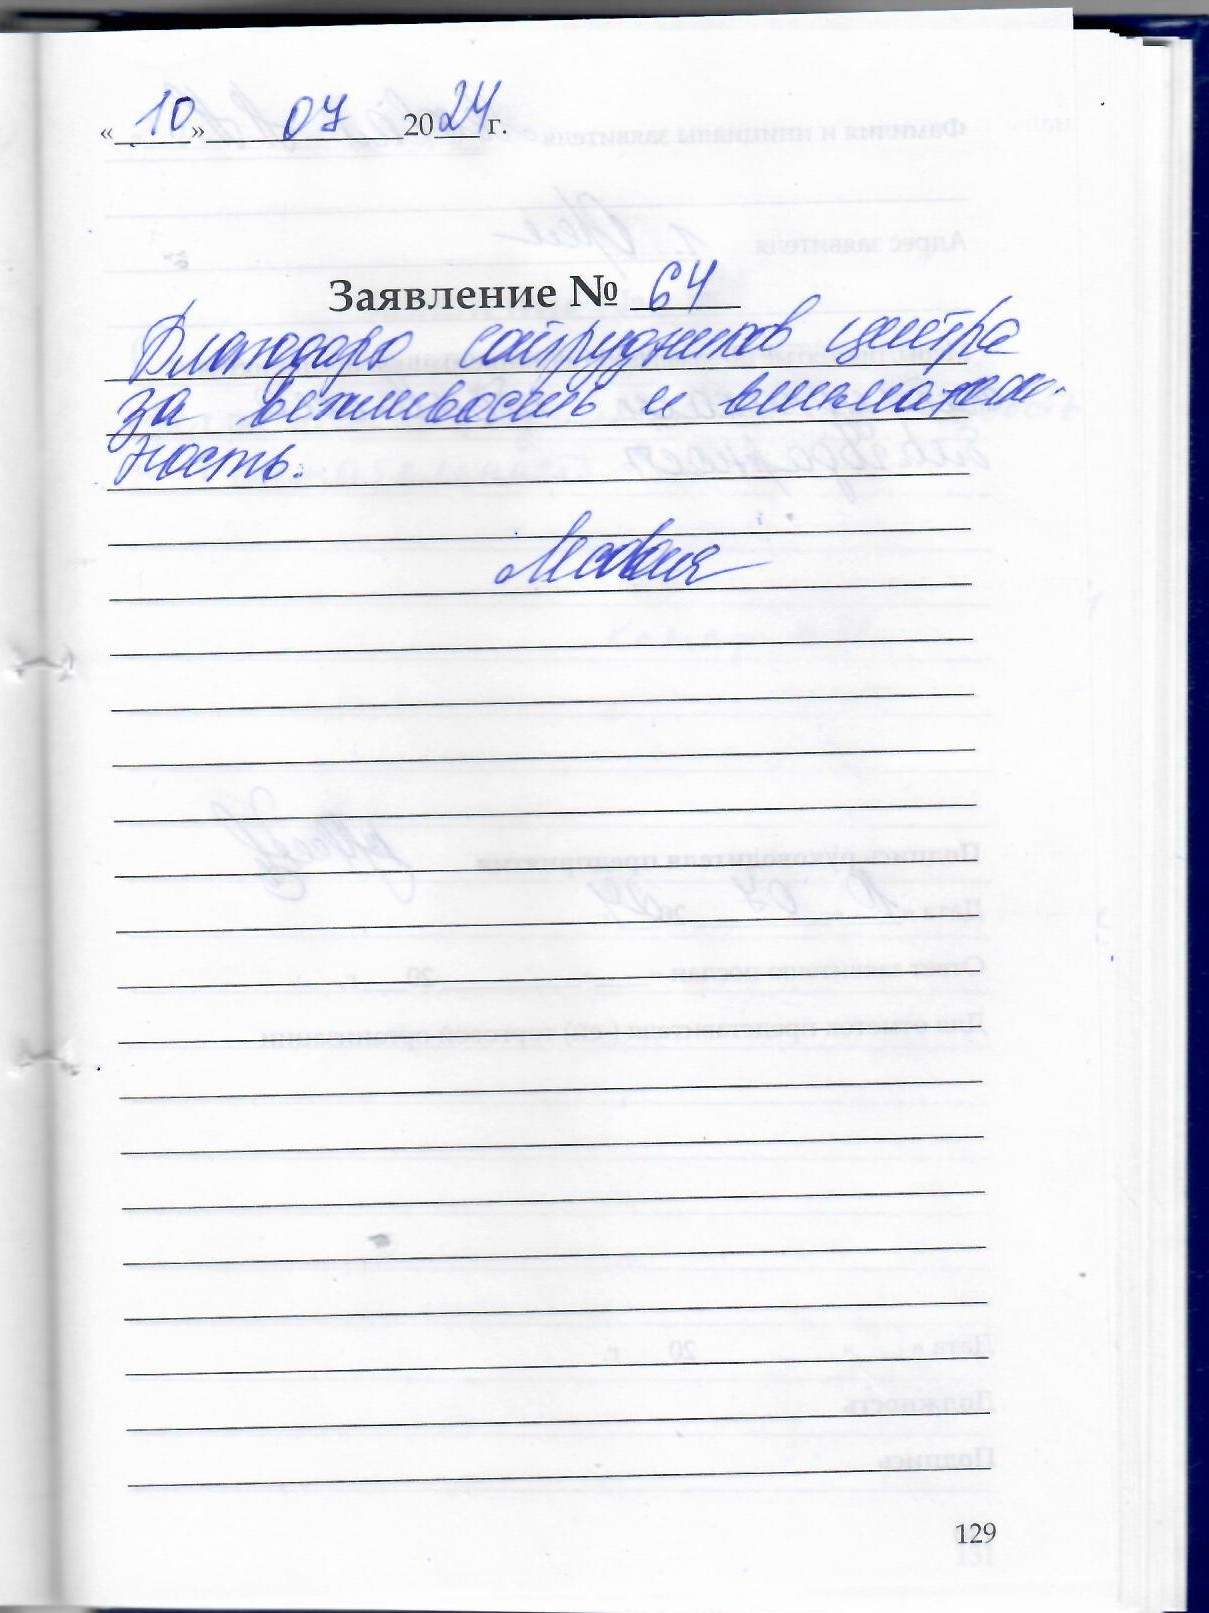 «10» 07 2024 г.
Заявление № 64
Благодарю сотрудников центра
за вежливость и вниматель-
ность.
129